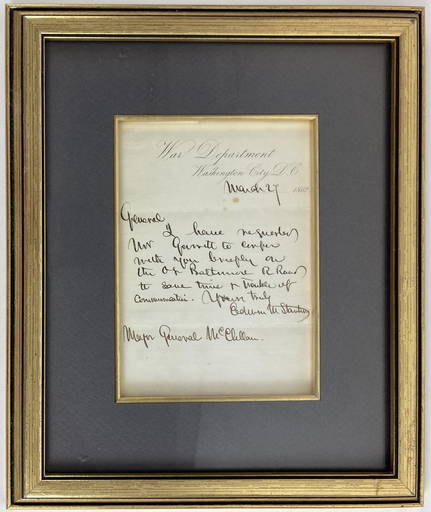 War Department
Washington City, D.C.
March 27 1862
General
I have requested
Mr Garrett to confer
with you briefly on
the Baltimore R Road
to save time & trouble of
communication. Yours truly
Edwin M Stanton
Major General McClellan.